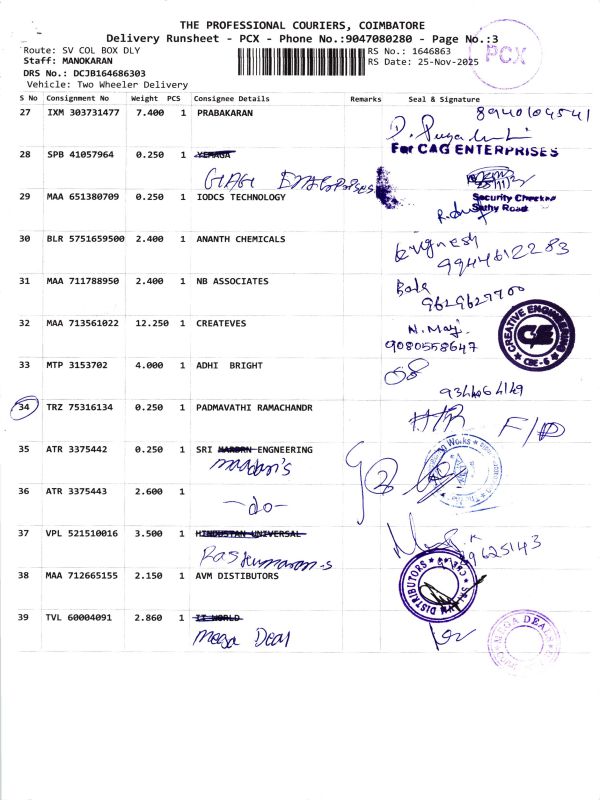 THE PROFESSIONAL COURIERS, COIMBATORE
Delivery Runsheet - PCX - Phone No.:9047080280 - Page No.:3
PCX
Route: SV COL BOX DLY
RS No.: 1646863
Staff: MANOKARAN
RS Date: 25-Nov-2025
DRS No.: DCJB164686303
Vehicle: Two Wheeler Delivery
S No Consignment No Weight PCS Consignee Details Remarks Seal & Signature
27 IXM 303731477 7.400 1 PRABAKARAN
8940109541
28 SPB 41057964 0.250 1
For CAG ENTERPRISES
29 MAA 651380709 0.250 1 IODCS TECHNOLOGY
Security Checked
Sathy Road
30 BLR 5751659500 2.400 1 ANANTH CHEMICALS
Vignesh
9944612283
31 MAA 711788950 2.400 1 NB ASSOCIATES
Bala
9629629700
32 MAA 713561022 12.250 1 CREATEVES
9080558647
CREATIVE ENGINEERING
CE
CBE-6
33 MTP 3153702 4.000 1 ADHI BRIGHT
34 TRZ 75316134 0.250 1 PADMAVATHI RAMACHANDR
35 ATR 3375442 0.250 1 SRI HARDRN ENGNEERING
36 ATR 3375443 2.600 1
-do-
37 VPL 521510016 3.500 1 HINDUSTAN UNIVERSAL
38 MAA 712665155 2.150 1 AVM DISTIBUTORS
SRI AVM DISTRIBUTORS
39 TVL 60004091 2.860 1 II WORLD
Mega Deal
MEGA DEALS